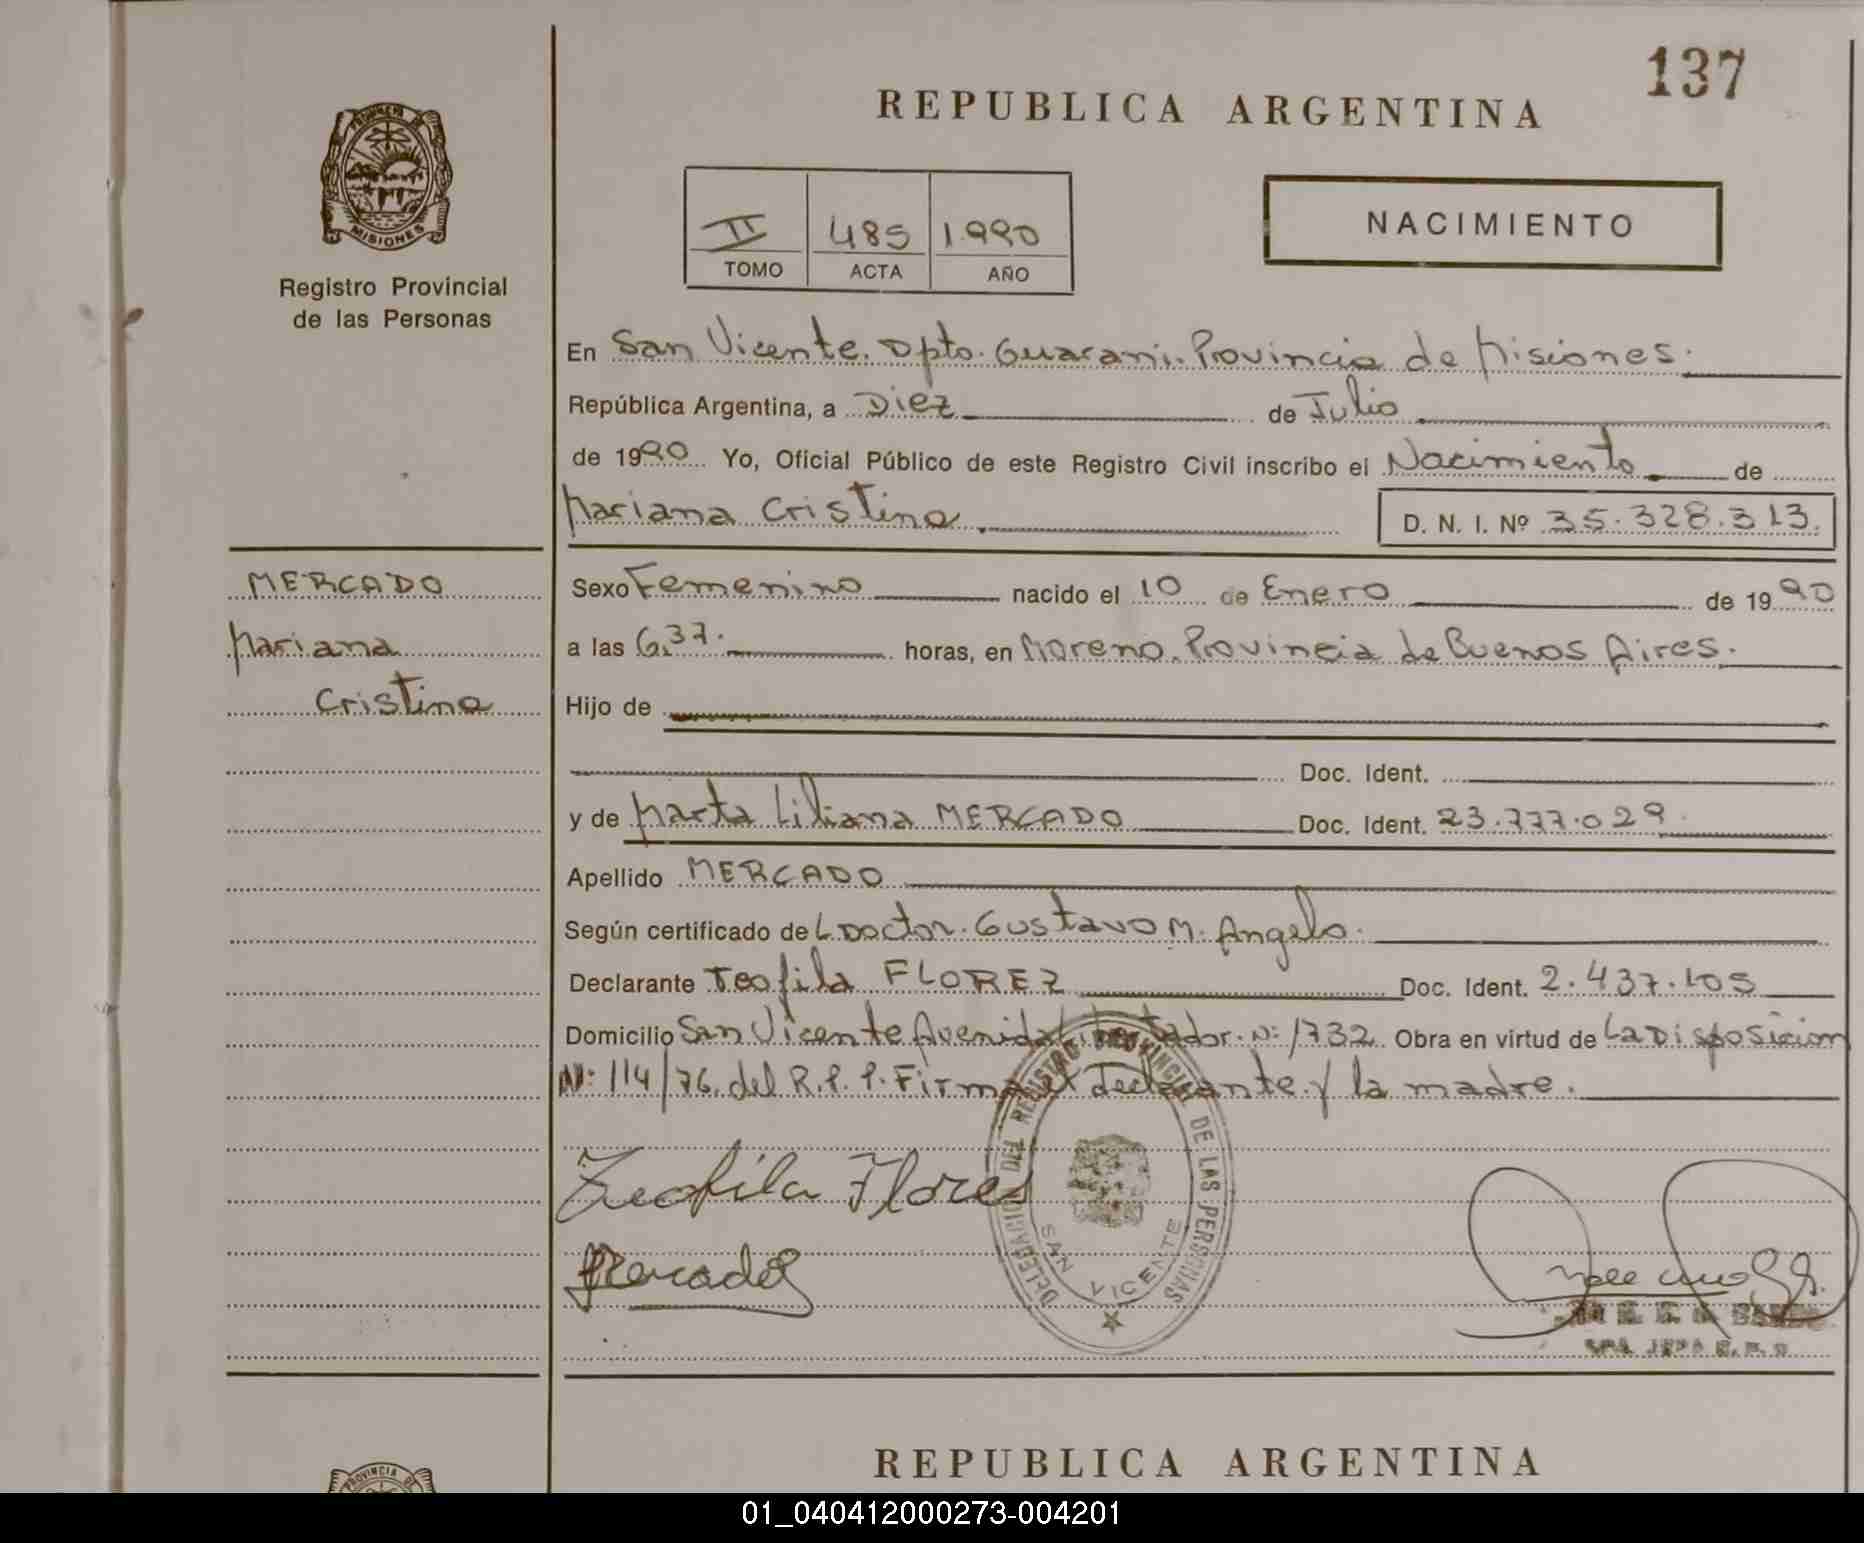 137
REPUBLICA ARGENTINA
PROVINCIA DE
MISIONES
Registro Provincial
de las Personas
II 485 1.990
TOMO ACTA AÑO
NACIMIENTO
En San Vicente. Dpto. Guarani. Provincia de Misiones.
República Argentina, a Diez de Julio
de 1990 Yo, Oficial Público de este Registro Civil inscribo el Nacimiento de
Mariana Cristina D. N. I. Nº 35.328.313.
MERCADO
Mariana
Cristina
Sexo Femenino nacido el 10 de Enero de 1990
a las 6,37. horas, en Moreno. Provincia de Buenos Aires.
Hijo de
Doc. Ident.
y de Marta Liliana MERCADO Doc. Ident. 23.777.029.
Apellido MERCADO
Según certificado de L Doctor. Gustavo M. Angelo.
Declarante Teofila FLOREZ Doc. Ident. 2.437.105
Domicilio San Vicente Avenida Libertador. Nº: 1732. Obra en virtud de La Disposicion
Nº: 114/76. del R.P.P. Firma el Declarante y la madre.
Teofila Flores
Mercado
DELEGACION DEL REGISTRO PROVINCIAL DE LAS PERSONAS
SAN VICENTE
REPUBLICA ARGENTINA
PROVINCIA DE
01_040412000273-004201